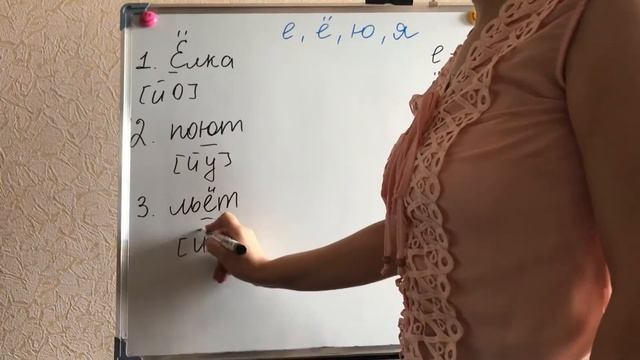 е, ё, ю, я
1. Ёлка
[й О]
2. поют
[й у]
3. льёт
[й
е